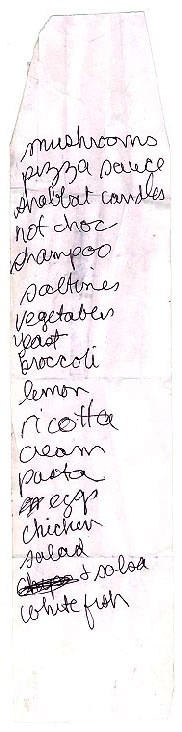 mushrooms
pizza sauce
shabbat candles
hot choc
shampoo
saltines
vegetables
yeast
broccoli
lemon
ricotta
cream
pasta
eggs
chicken
salad
chips & salsa
whitefish